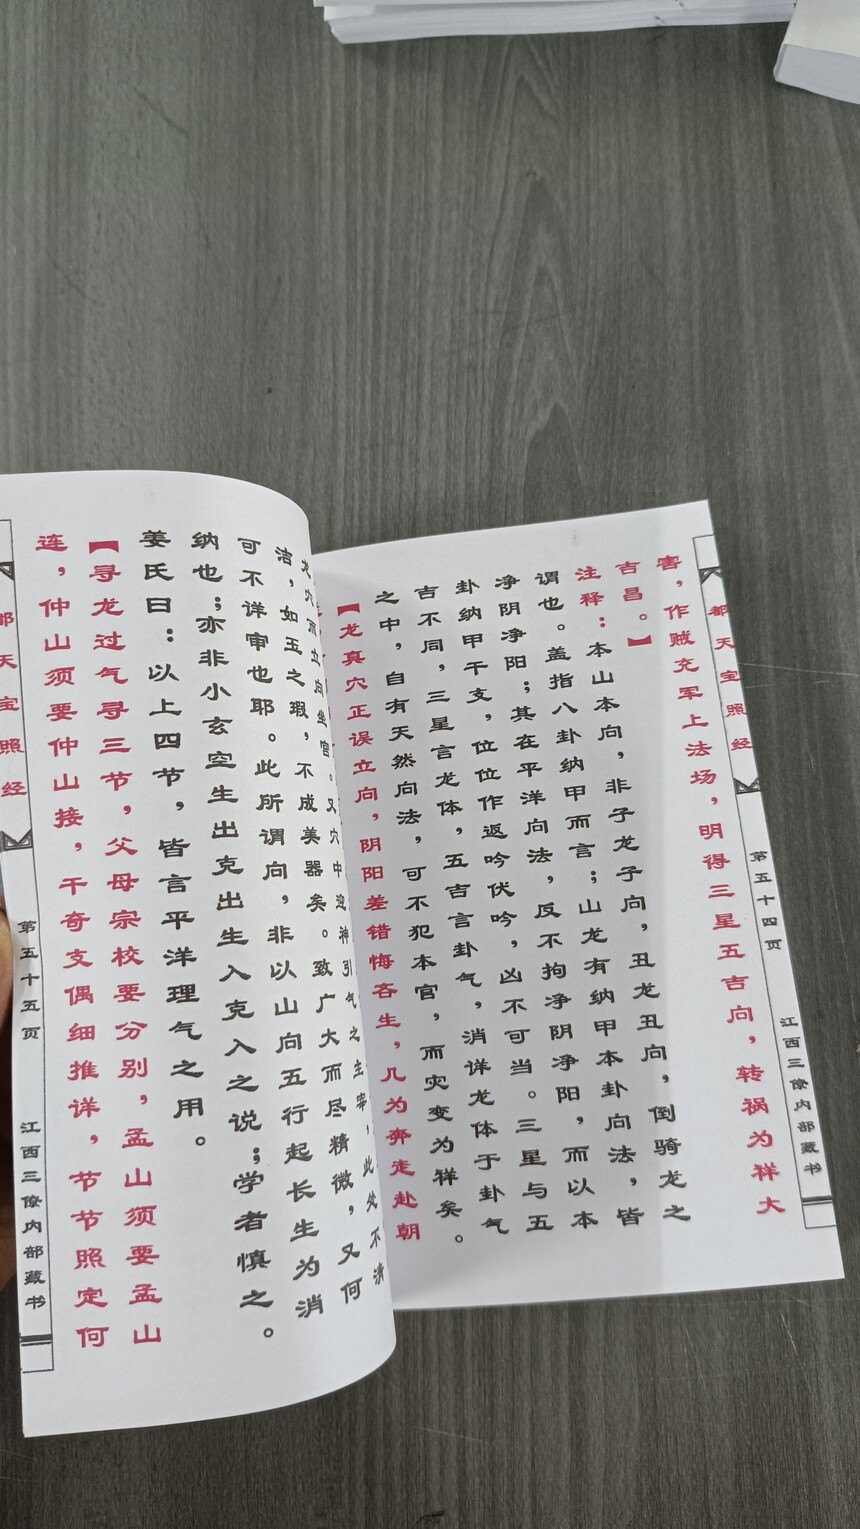 都天宝照经
第五十四页
江西三僚内部藏书
害，作贼充军上法场，明得三星五吉向，转祸为祥大
吉昌。】
注释：本山本向，非子龙子向，丑龙丑向，倒骑龙之
谓也。盖指八卦纳甲而言；山龙有纳甲本卦向法，皆
净阴净阳；其在平洋向法，反不拘净阴净阳，而以本
卦纳甲干支，位位作返吟伏吟，凶不可当。三星与五
吉不同，三星言龙体，五吉言卦气，消详龙体于卦气
之中，自有天然向法，可不犯本官，而灾变为祥矣。
【龙真穴正误立向，阴阳差错悔吝生，几为奔走赴朝
穴中迎神引气之主宰，此处不清
洁，如玉之瑕，不成美器矣。致广大而尽精微，又何
可不详审也耶。此所谓向，非以山向五行起长生为消
纳也；亦非小玄空生出克出生入克入之说；学者慎之。
姜氏曰：以上四节，皆言平洋理气之用。
【寻龙过气寻三节，父母宗校要分别，孟山须要孟山
连，仲山须要仲山接，干奇支偶细推详，节节照定何
都天宝照经
第五十五页
江西三僚内部藏书